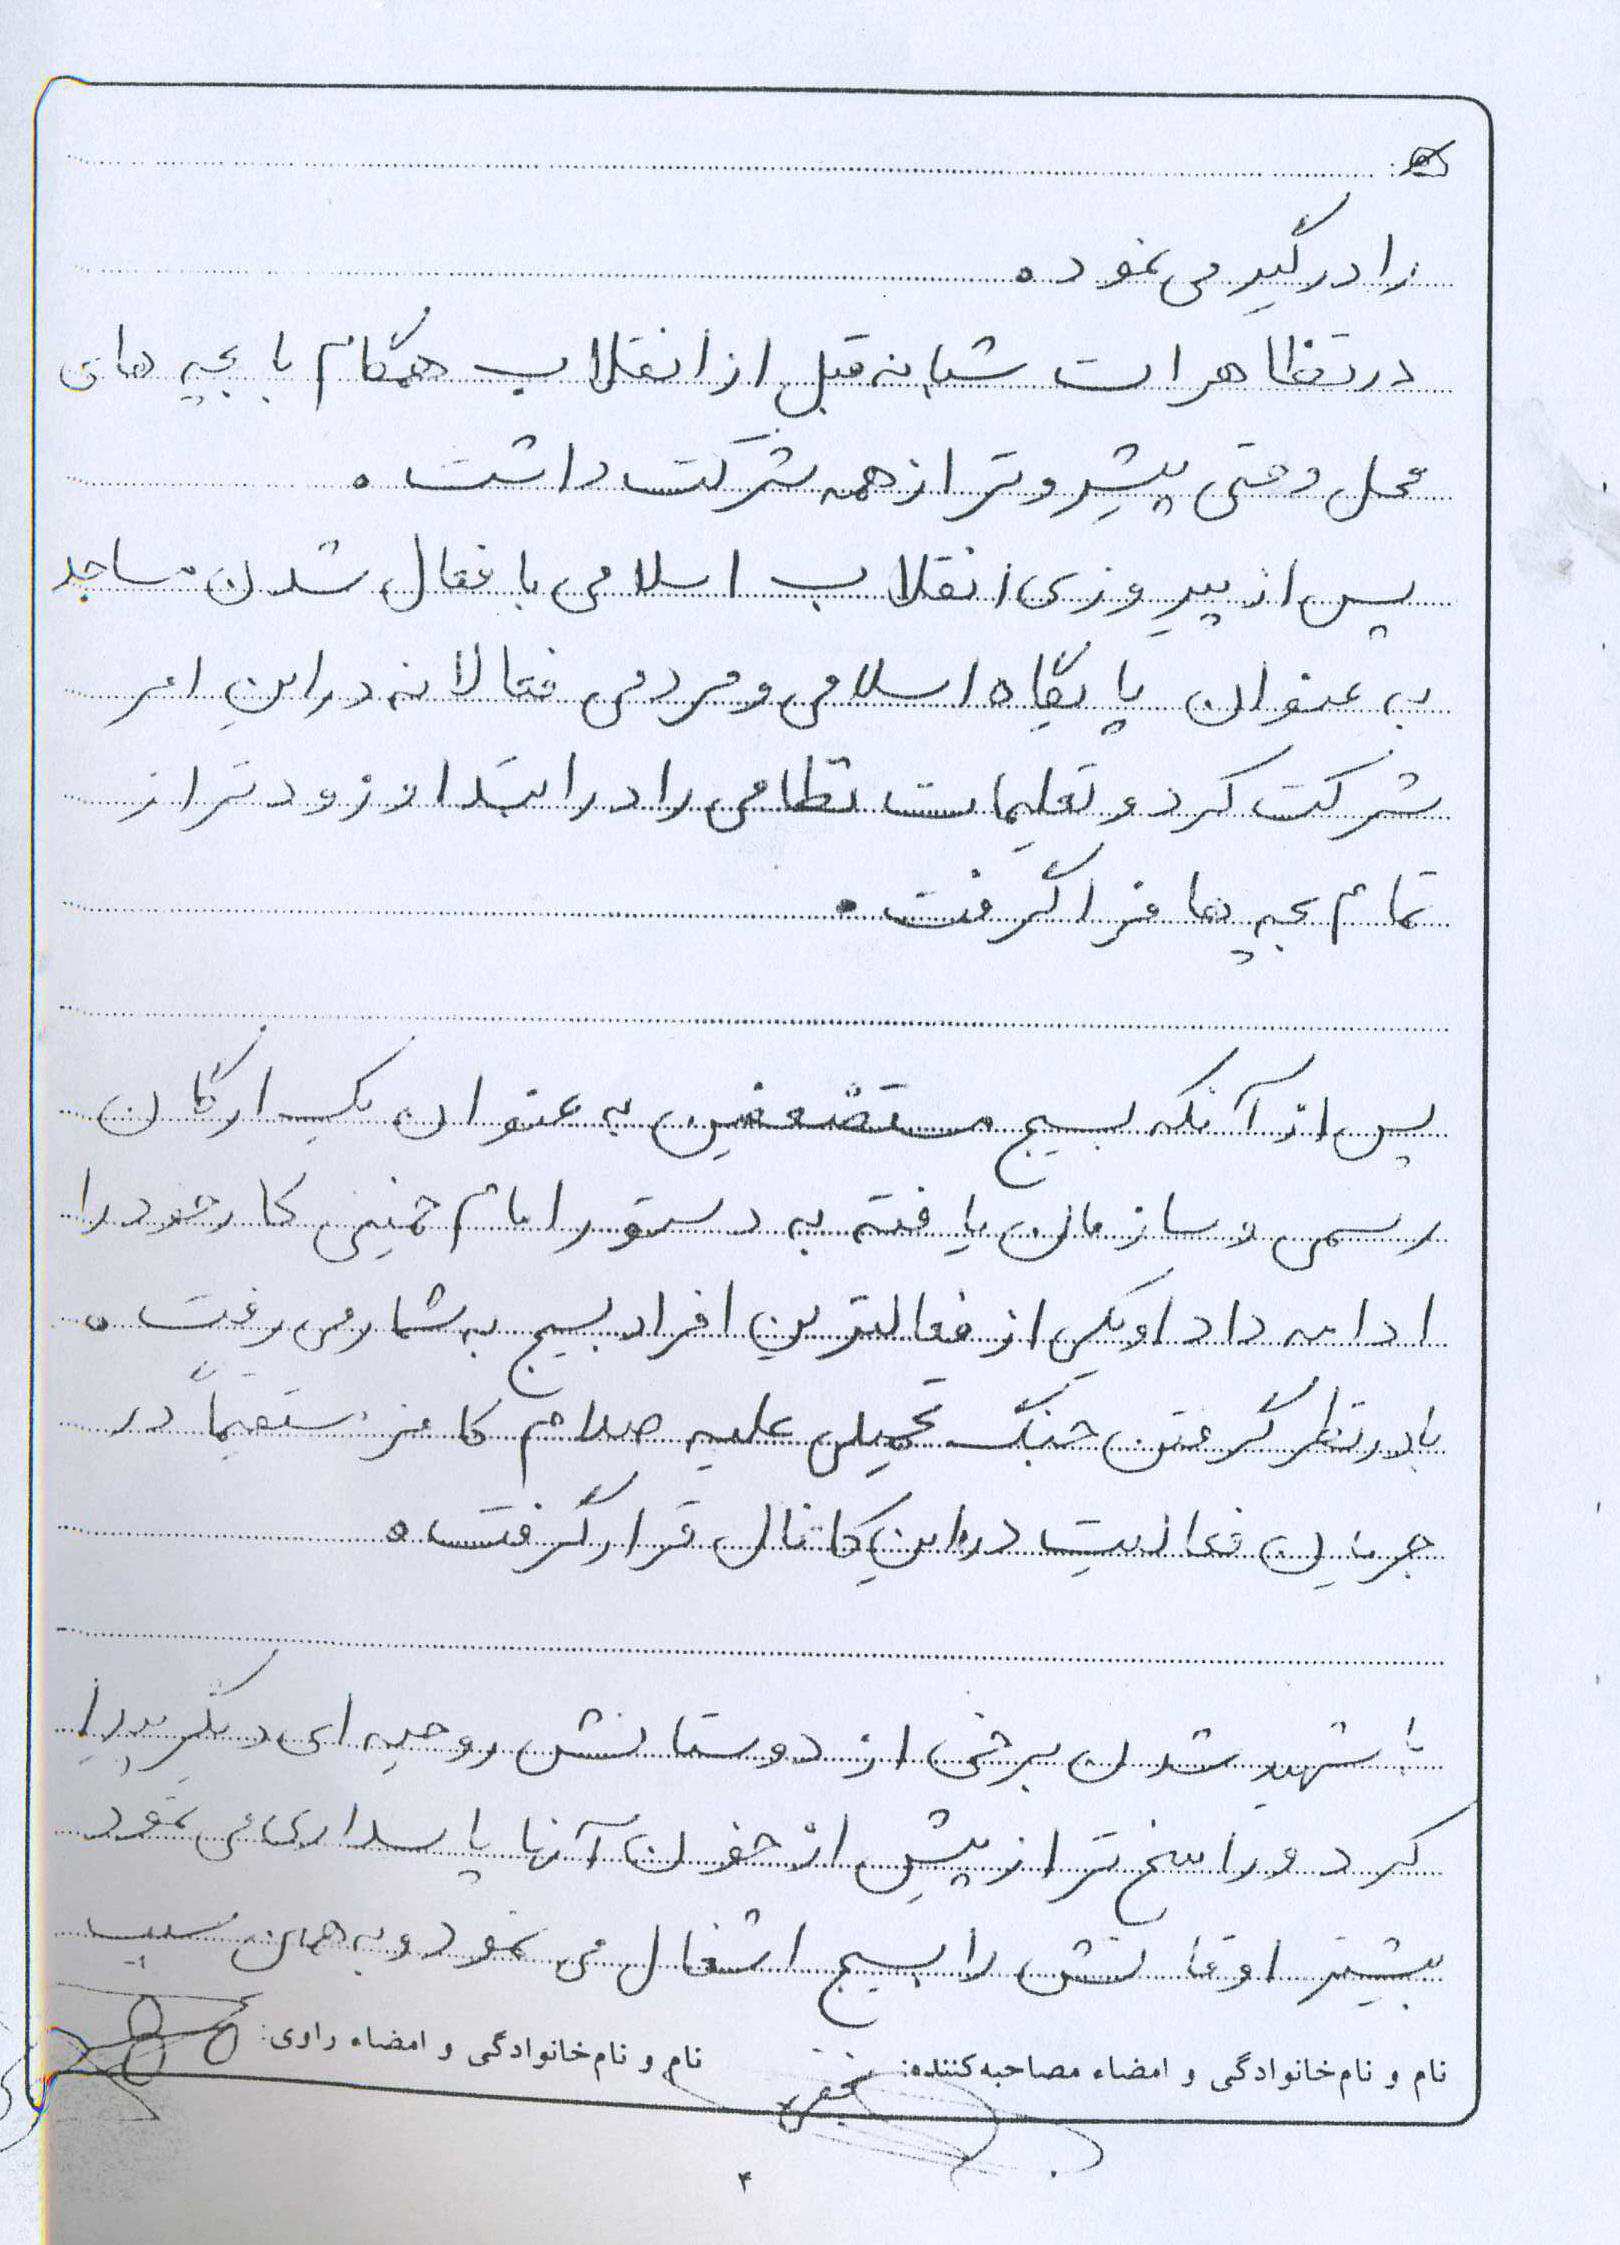 را درگیر می نمود.
در تظاهرات شبانه قبل از انقلاب همگام با بچه های
محل و حتی پیشرو تر از همه شرکت داشت.
پس از پیروزی انقلاب اسلامی با فعال شدن مساجد
به عنوان پایگاه اسلامی و مردمی فعالانه در این امر
شرکت کرد و تعلیمات نظامی را در ابتدا و زودتر از
تمام بچه ها فرا گرفت.
پس از آنکه بسیج مستضعفین به عنوان یک ارگان
رسمی و سازمان یافته به دستور امام خمینی کار خود را
ادامه داد او یکی از فعالترین افراد بسیج به شمار می رفت.
با در نظر گرفتن جنگ تحمیلی علیه صدام کافر مستقیماً در
جریان فعالیت در این کانال قرار گرفت.
با شهید شدن برخی از دوستانش روحیه ای دیگر پیدا
کرد و راسخ تر از پیش از خون آنها پاسداری می نمود
بیشتر اوقاتش را بسیج اشغال می نمود و به همین سبب
نام و نام خانوادگی و امضاء مصاحبه کننده: نام و نام خانوادگی و امضاء راوی:
۴